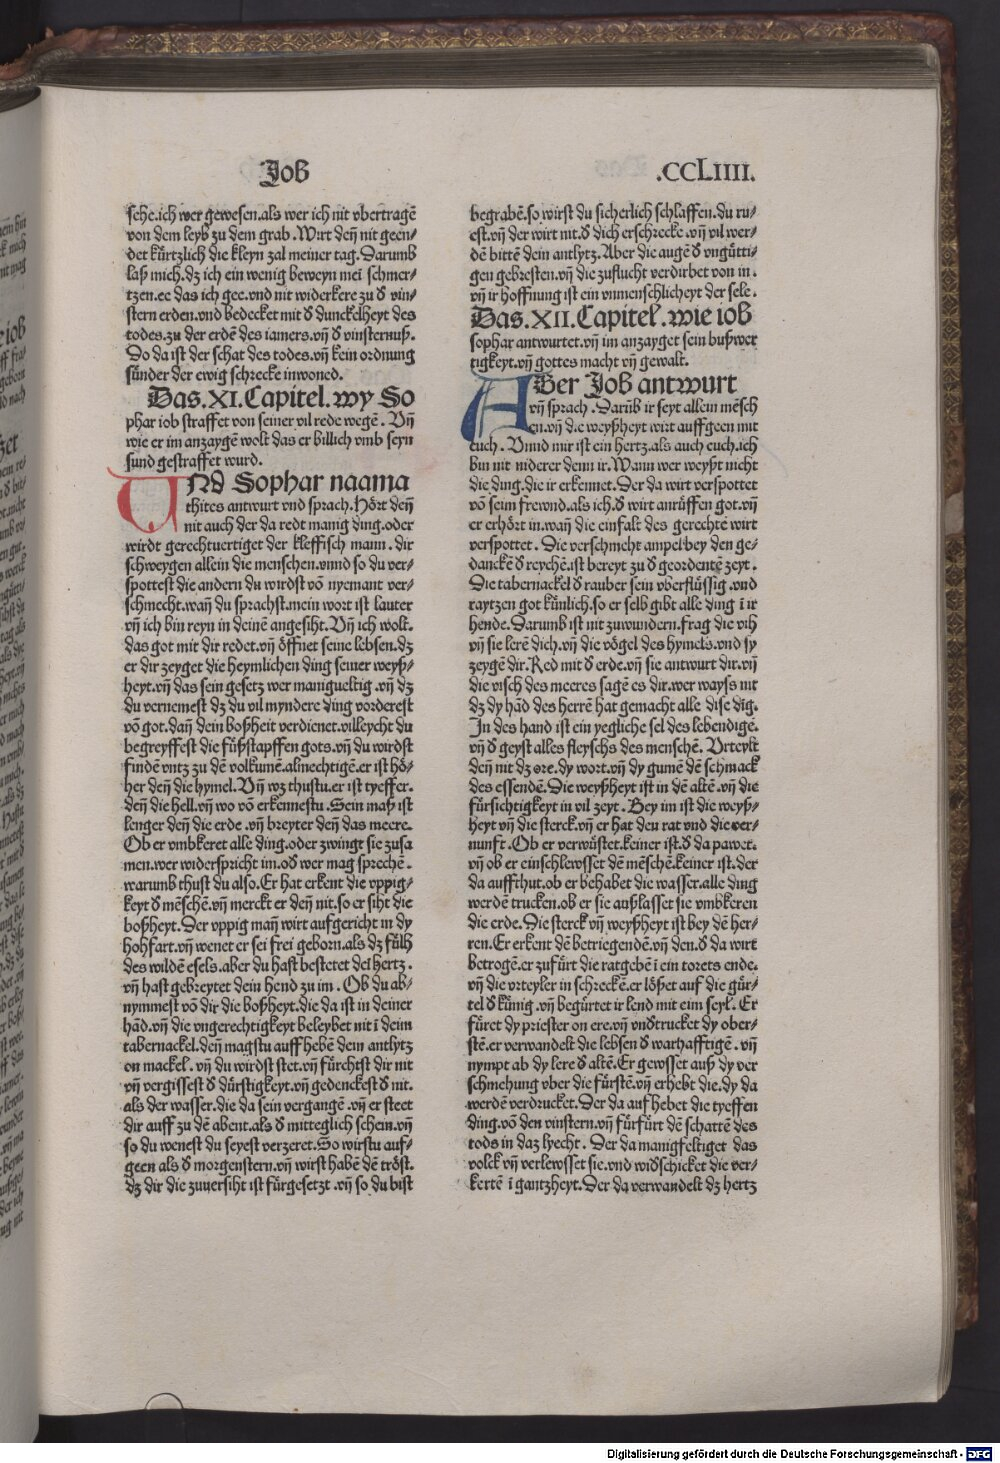 Job
.CCLIIII.
sehe.ich wer gewesen.als wer ich nit vbertragē
von dem leyb zu dem grab. Wirt deñ nit geen⸗
det kürtzlich die kleyn zal meiner tag. Darumb
laß mich.dz ich ein wenig beweyn mei schmer⸗
tzen.ee das ich gee.vnd nit widerkere zu d vin⸗
stern erden.vnd bedecket mit d dunckelheyt des
todes.zu der erdē des iamers.vñ d vinsternuß.
Do da ist der schat des todes.vñ kein ordnung
sünder der ewig schrecke inwoned.
Das.XI.Capitel.wy So
phar iob straffet von seiner vil rede wegē. Vñ
wie er im anzaygē wolt das er billich vmb seyn
sund gestraffet wurd.
VNd Sophar naama
thites antwurt vnd sprach.Hört deñ
nit auch der da redt manig ding.oder
wirdt gerechtuertiget der kleffisch mann. dir
schweygen allein die menschen.vnnd so du ver⸗
spottest die andern du wirdst vō nyemant ver⸗
schmecht.wañ du sprachst.mein wort ist lauter
vñ ich bin reyn in deinē angesiht. Vñ ich wolt.
das got mit dir redet.vñ öffnet seine lebsen.dz
er dir zeyget die heymlichen ding seiner weyß⸗
heyt.vñ das sein gesetz wer manigueltig .vñ dz
du vernemest dz du vil myndere ding vorderest
vō got.dañ dein boßheit verdienet.villeycht du
begreyffest die füßstapffen gots.vñ du wirdst
findē vntz zu dē volkumē.almechtigē.er ist hö⸗
her deñ die hymel. Vñ wz thustu.er ist tyeffer.
deñ die hell.vñ wo vō erkennestu. Sein maß ist
lenger deñ die erde .vñ breyter deñ das meere.
Ob er vmbkeret alle ding.oder zwingt sie zusa
men.wer widerspricht im.od wer mag sprechē.
warumb thust du also. Er hat erkent die vppig⸗
keyt d mēschē.vñ merckt er deñ nit.so er siht die
boßheyt. Der vppig mañ wirt aufgericht in dy
hohfart.vñ wenet er sei frei geborn.als dz fülh
des wildē esels.aber du hast bestetet dei hertz.
vñ hast gebreytet dein hend zu im . Ob du ab⸗
nymmest vō dir die boßheyt.die da ist in deiner
hād.vñ die vngerechtigkeyt beleybet nit ī deim
tabernackel.deñ magstu auff hebē dein antlytz
on mackel. vñ du wirdst stet.vñ fürchtst dir nit
vñ vergissest d dürstigkeyt.vñ gedenckest d nit.
als der wasser.die da sein vergangē .vñ er steet
dir auff zu dē abent.als d mitteglich schein.vñ
so du wenest du seyest verzeret.So wirstu auf⸗
geen als d morgenstern.vñ wirst habē dē tröst.
dz dir die zuuersiht ist fürgesetzt .vñ so du bist
begrabē.so wirst du sicherlich schlaffen.du ru⸗
est.vñ der wirt nit.d dich erschrecke .vñ vil wer⸗
dē bittē dein antlytz. Aber die augē d vngütti⸗
gen gebresten.vñ die zuflucht verdirbet von in.
vñ ir hoffnung ist ein vnmenschlicheyt der sele.
Das.XII.Capitel.wie iob
sophar antwurtet.vñ im anzayget sein bußwer
tigkeyt.vñ gottes macht vñ gewalt.
ABer Job antwurt
vñ sprach . Darūb ir seyt allein mēsch
en.vñ die weyßheyt wirt auffgeen mit
euch. Vnnd mir ist ein hertz.als auch euch.ich
bin nit niderer denn ir. Wann wer weyßt nicht
die ding.die ir erkennet. Der da wirt verspottet
vō seim frewnd.als ich.d wirt anrüffen got.vñ
er erhört in.wañ die einfalt des gerechtē wirt
verspottet . Die verschmeht ampel bey den ge⸗
danckē d reychē.ist bereyt zu d geordentē zeyt.
Die tabernackel d rauber sein vberflüssig .vnd
raytzen got künlich.so er selb gibt alle ding ī ir
hende. Darumb ist nit zuwundern.frag die vih
vñ sie lerē dich.vñ die vögel des hymels.vnd sy
zeygē dir. Red mit d erde.vñ sie antwurt dir.vñ
die visch des meeres sagē es dir.wer wayss nit
dz dy hād des herrē hat gemacht alle dise dīg.
In des hand ist ein yegliche sel des lebendigē.
vñ d geyst alles fleyschs des menschē. Vrteylt
deñ nit dz ore.dy wort.vñ dy gumē dē schmack
des essendē. Die weyßheyt ist in dē altē .vñ die
fürsichtigkeyt in vil zeyt. Bey im ist die weyß⸗
heyt vñ die sterck.vñ er hat den rat vnd die ver⸗
nunft. Ob er verwüstet.keiner ist.d da pawet.
vñ ob er einschlewsset dē mēschē.keiner ist.der
da auffthut.ob er behabet die wasser.alle ding
werdē trucken.ob er sie außlasset sie vmbkeren
die erde. Die sterck vñ weyßheyt ist bey dē her⸗
ren. Er erkent dē betriegendē.vñ den.d da wirt
betrogē.er zufürt die ratgebē ī ein torets ende.
vñ die vrteyler in schreckē.er lößet auf die gür⸗
tel d künig.vñ begürtet ir lend mit eim seyl. Er
füret dy priester on ere.vñ vndtrucket dy ober⸗
stē.er verwandelt die lebsen d warhafftigē . vñ
nympt ab dy lere d altē. Er gewsset auß dy ver
schmehung vber die fürstē.vñ erhebt die.dy da
werdē verdrucket. Der da auf hebet die tyeffen
ding.vō den vinstern.vñ fürfürt dē schattē des
tods in daz lyecht. Der da manigfeltiget das
volck vñ verlewsset sie.vnd widschicket die ver⸗
kertē ī gantzheyt. Der da verwandelt dz hertz
Digitalisierung gefördert durch die Deutsche Forschungsgemeinschaft - DFG